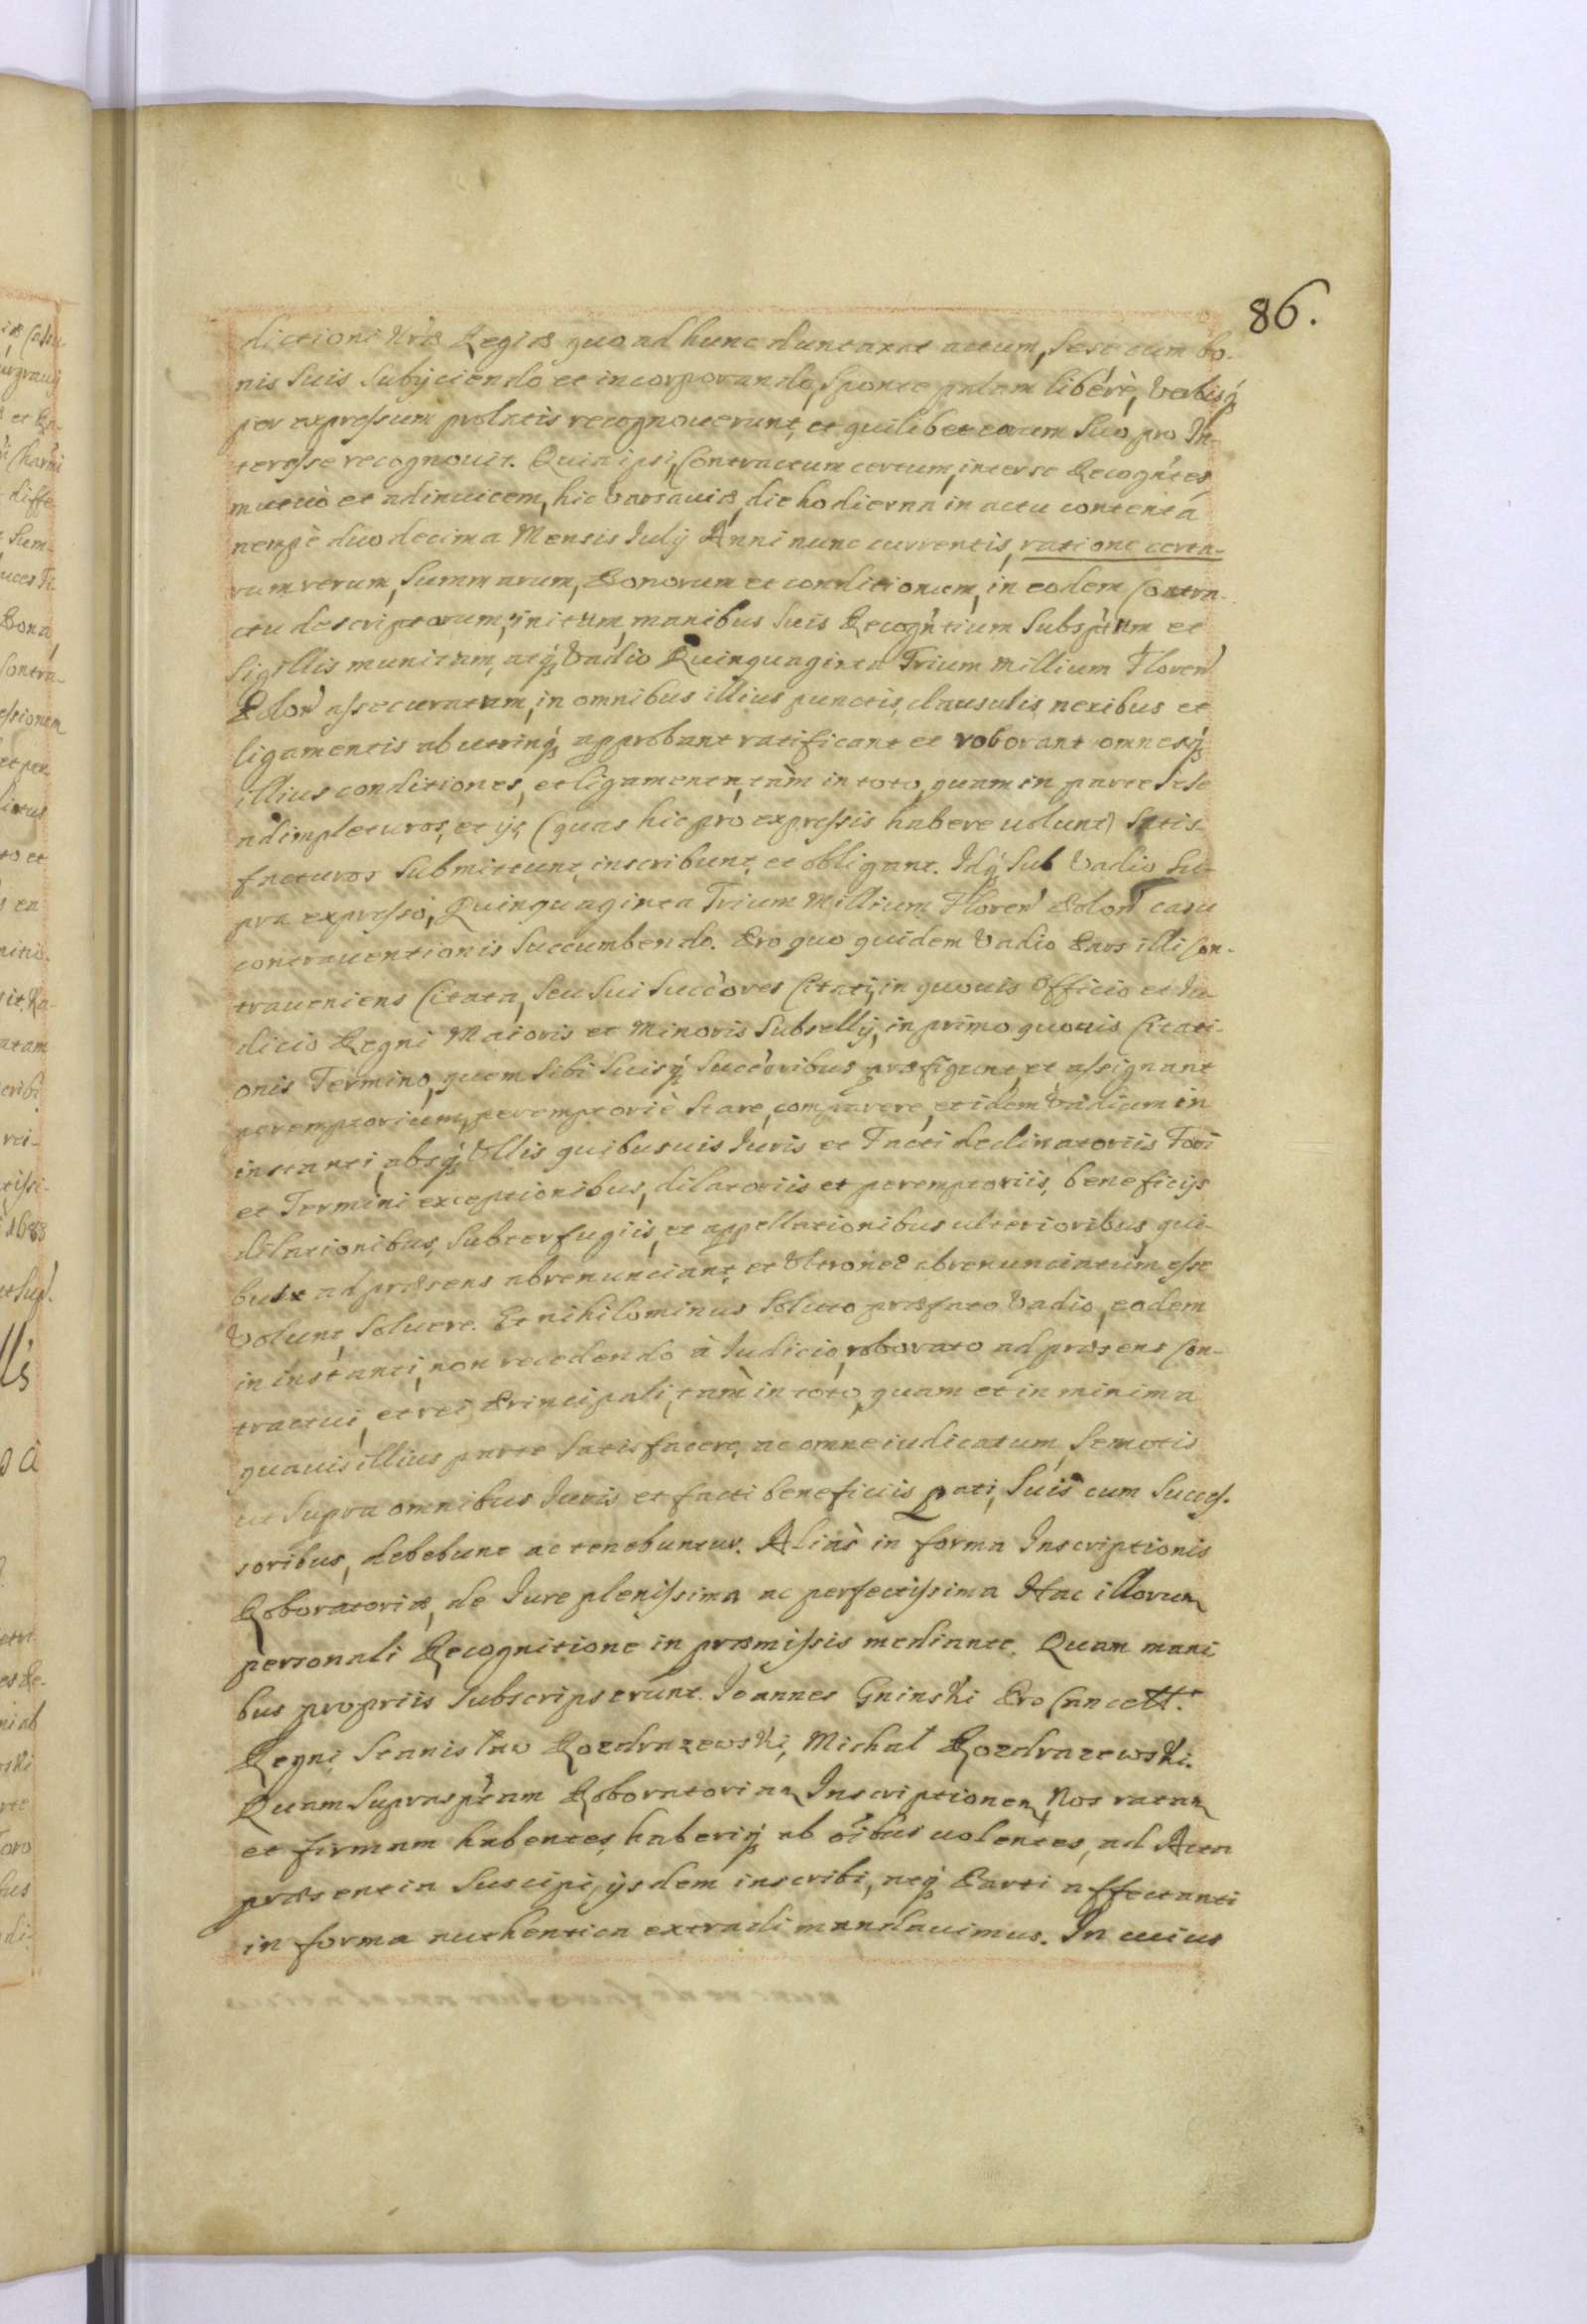 86.
dictioni Nr̃æ Regiæ quo ad hunc duntaxat actum, sese cum bo-
nis suis subijciendo et incorporando, sponte palam liberè, Verbisq́
per expreſsum prolatis recognouerunt, et quilibet eorum suo pro In-
tereſse recognouit. Quia ipsi, Contractum certum, inter se Recogñtes
mutuò et adinuicem, hic Varsauiæ, die hodierna in actu contenta
nempè duodecima Mensis Iulij Anni nunc currentis, ratione certa-
rum rerum, Summarum, Bonorum et conditionum, in eodem Contra-
ctu descriptorum, initum, manibus suis Recogñtium subsp̃tum et
Sigillis munitum, atq́ Vadio Quinquaginta Trium Millium Floren̄
Polon̄ aſsecuratum, in omnibus illius punctis, clausulis nexibus et
ligamentis ab utrinq́ approbant ratificant et roborant omnesq́
illius conditiones, et ligamenta, tàm in toto, quam in parte sese
adimpleturos, et ijs (quas hic pro expreſsis habere uolunt) satis-
facturos submittunt, inscribunt, et obligant. Idq́ sub Vadio Su-
pra expreſso, Quinquaginta Trium Millium Floren̄ Polon̄ casu
contrauentionis succumbendo. Pro quo quidem Vadio Pars illi Con-
traueniens Citata, seu sui Succ̃ores Citati, in quouis Officio et Iu-
dicio Regni Maioris et Minoris Subsellij, in primo quouis Citati-
onis Termino, quem sibi suisq́ succ̃oribus præfigunt, et aſsignant
peremptorium, peremptoriè stare, comparere, et idem Vadium in
instanti, absq́ Vllis quibusuis Iuris et Facti declinatoriis Fori
et Termini exceptionibus, dilatoriis et peremptoriis, beneficijs
dilationibus, subterfugiis, et appellationibus ulterioribus, qui-
bus ad præsens abrenunciant, et Vltroneè abrenunciatum eſse
Volunt, soluere. Et nihilominus soluto præfato Vadio, eodem
in instanti, non recedendo à Iudicio, roborato ad præsens Con-
tractui, et rei Principali, tam in toto, quam et in minima
quauis illius parte satisfacere, ac omne iudicatum, semotis
ut supra omnibus Iuris et facti beneficiis pati, suis cum Succeſ-
soribus, debebunt ac tenebuntur. Aliàs in forma Inscriptionis
Roboratoriæ, de Iure pleniſsima ac perfectiſsima Hac illorum
personali Recognitione in præmiſsis mediante. Quam mani
bus propriis subscripserunt. Ioannes Gninski ProCancell.
Regni Stanisław Rozdrazewski, Michał Rozdrazewski.
Quam suprasp̃tam Roboratoriam Inscriptionem, Nos ratam
et firmam habentes, haberiq́ ab oībus uolentes, ad Acta
præsentia suscipi, ijsdem inscribi, atq́ Parti affectanti
in forma authentica extradi mandauimus. In cuius